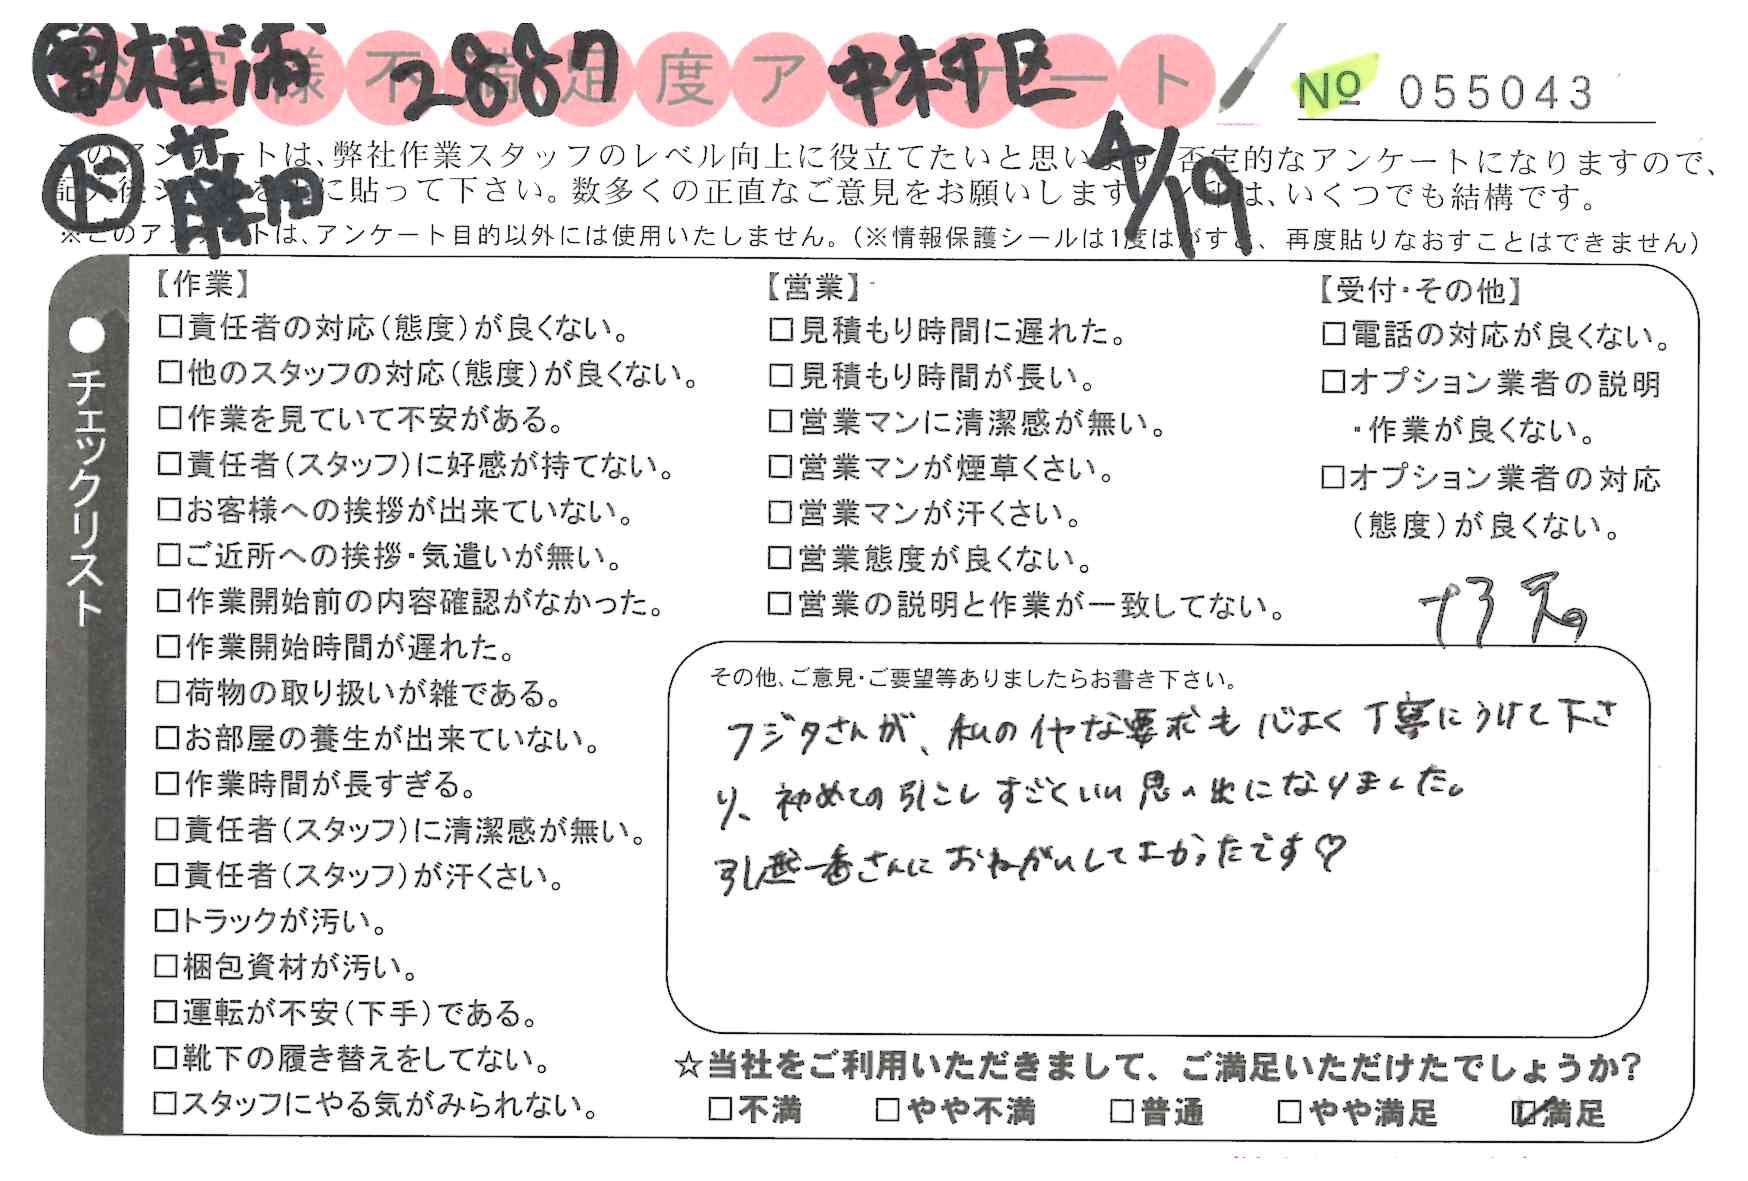 お客様不満足度アンケート
営 相浦 2887 中村区
№ 055043
ド 藤田 4/19
このアンケートは、弊社作業スタッフのレベル向上に役立てたいと思います。否定的なアンケートになりますので、
記入後シールを上に貼って下さい。数多くの正直なご意見をお願いします。✓印は、いくつでも結構です。
※このアンケートは、アンケート目的以外には使用いたしません。(※情報保護シールは1度はがすと、再度貼りなおすことはできません)
●チェックリスト
【作業】
□責任者の対応(態度)が良くない。
□他のスタッフの対応(態度)が良くない。
□作業を見ていて不安がある。
□責任者(スタッフ)に好感が持てない。
□お客様への挨拶が出来ていない。
□ご近所への挨拶・気遣いが無い。
□作業開始前の内容確認がなかった。
□作業開始時間が遅れた。
□荷物の取り扱いが雑である。
□お部屋の養生が出来ていない。
□作業時間が長すぎる。
□責任者(スタッフ)に清潔感が無い。
□責任者(スタッフ)が汗くさい。
□トラックが汚い。
□梱包資材が汚い。
□運転が不安(下手)である。
□靴下の履き替えをしてない。
□スタッフにやる気がみられない。
【営業】
□見積もり時間に遅れた。
□見積もり時間が長い。
□営業マンに清潔感が無い。
□営業マンが煙草くさい。
□営業マンが汗くさい。
□営業態度が良くない。
□営業の説明と作業が一致してない。
【受付・その他】
□電話の対応が良くない。
□オプション業者の説明
・作業が良くない。
□オプション業者の対応
(態度)が良くない。
その他、ご意見・ご要望等ありましたらお書き下さい。
フジタさんが、私のイヤな要求も心よく丁寧にうけて下さ
り、初めての引こしすごくいい思い出になりました。
引越一番さんにおねがいしてよかったです♡
☆当社をご利用いただきまして、ご満足いただけたでしょうか?
□不満 □やや不満 □普通 □やや満足 ☑満足